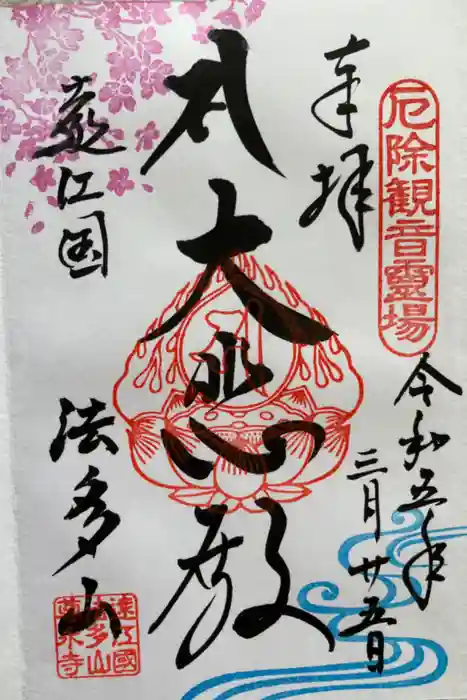 厄除観音靈場
奉拝
令和五年
三月廿五日
本大悲殿
遠江国
法多山
遠江國
法多山
尊永寺